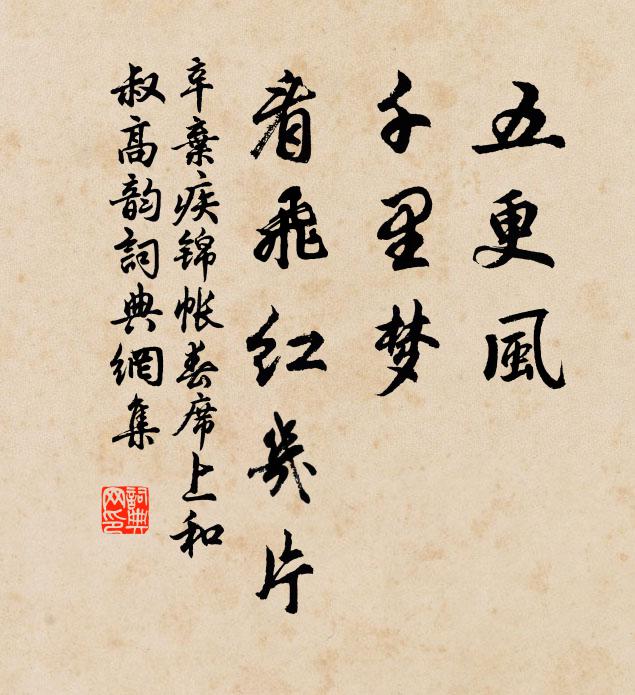 五更風
千里梦
看飛紅幾片
辛棄疾錦帳春席上和
叔高韵詞典網集
詞典
网印